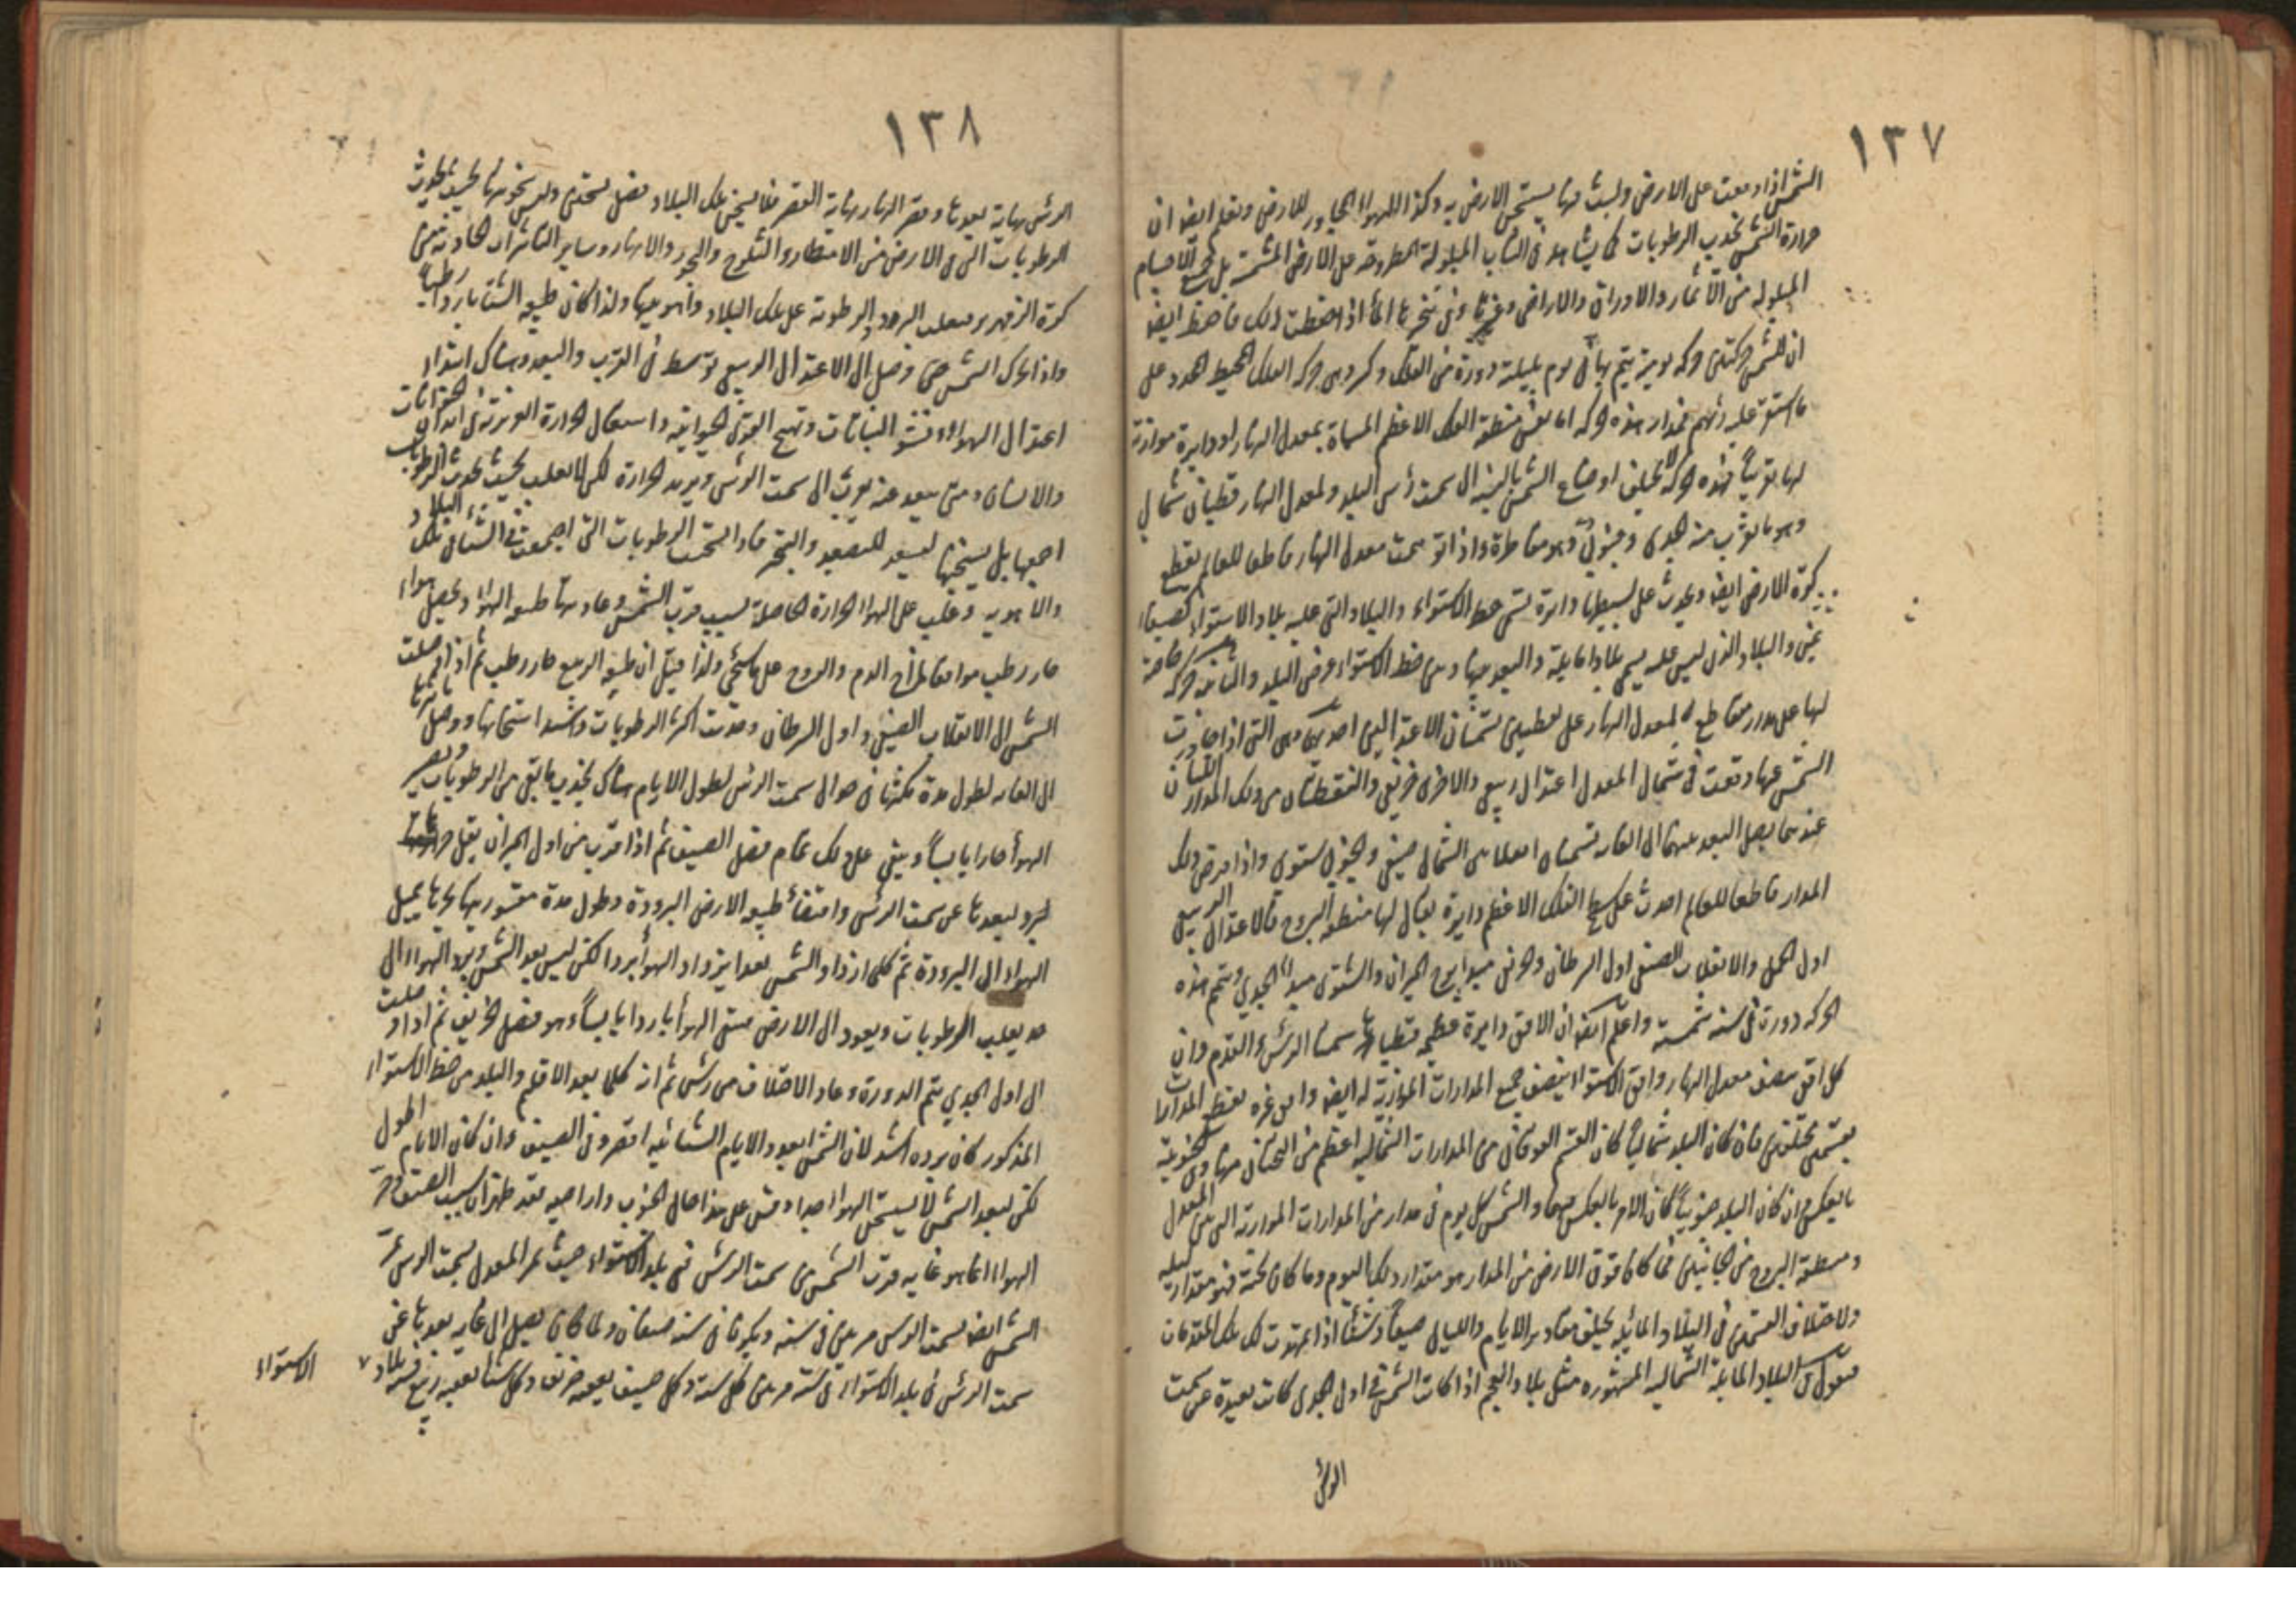 ١٣٧
الشمس اذا وقعت على الارض ولبثت فيها يستحن الارض به وكذا الهواء المجاور للارض ونعلم ايضا ان
حرارة الشمس تجذب الرطوبات كما يشاهد فى الثياب المبلولة المطروحة على الارض المشمسة بل جميع الاجسام
المبلوله من الاثمار والاوراق والاراضى وغيرها وفى تبخرها الماء اذا حفظت ذلك فاحفظ ايضا
ان للشمس حركتين حركه يوميه يتم بها فى يوم بليلة دورة من الفلك وكر وهى حركه الفلك المحيط المحدد على
ما استقر عليه رئيهم فمدار هذه الحركه اما نفس منطقة الفلك الاعظم المسماة بمعدل النهار او دايرة موازنة
لها تقريبا فهذه الحركه لا يختلف اوضاع الشمس بالنسبه الى سمت رأس البلد ولمعدل النهار قطبان شمالى
وهو ما يقرب من الجدى وجنوبى وهو مقاطرة واذا توهمت معدل النهار قاطعا للعالم يقطع
كرة الارض ايضا ويحدث على بسيطها دايرة تسمى خط الاستواء والبلاد التى عليه بلاد الاستواء
والبلاد الذى ليس عليه يسمى بلادا مايلة والبعد بينها وبين خط الاستواء عرض البلد والثانيه حركه خاصة
لها على مدار مقاطع لمعدل النهار على نقطتين تسميان الاعتدالين احديهما وهى التى اذا جاوزت
الشمس عنها وقعت فى شمال المعدل اعتدال ربيعى والاخرى خريفى والنقطتان من ذلك المدار اللتان
عندهما يصل البعد بينهما الى الغاية تسميان انقلابين الشمالى صيفى والجنوبى ستوى واذا فرض ذلك
المدار قاطعا للعالم احدث على سطح الفلك الاعظم دايرة يقال لها منطقه البروج فالاعتدال الربيعى
اول الحمل والانقلاب الصيفى اول السرطان والخريفى مبدا برج الميزان والشتوى مبدا الجدى ويتم هذه
الحركه دورة فى سنه شمسية واعلم ايضا ان الافق دايرة عظيمه قطباها سمتا الرئس والقدم وان
كل افق ينصف معدل النهار وافق الاستواء ينصف جميع المدارات الموازية له ايضا واما غيره يقطع المدارات
بقسمين مختلفين فان كان البلد شماليا كان القسم الفوقانى من المدارات الشماليه اعظم من التحتانى منها وفى الجنوبية
بالعكس وان كان البلد جنوبيا كان الامر بالعكس فيهما والشمس كل يوم فى مدار من المدارات الموازية التى بين المعدل
ومنطقة البروج من الجانبين فما كان فوق الارض من المدار هو مقدار ذلك اليوم وما كان تحته فهو مقدار ليله
ولاختلاف القسمين فى البلاد المائيله يختلف مقادير الايام والليالى صيفا وشتاء اذا تمهدت لك تلك المقدمات
فنقول ان البلاد المايلة الشماليه المشهوره مثل بلاد العجم اذا كانت الشمس فى اول الجدى كانت بعيدة عن سمت
الرئس
١٣٨
الرئس نهاية بعدها وقصر النهار نهاية القصر فلا يسخن تلك البلاد فضل تسخين وليس تسخونها بحيث
الرطوبات التى فى الارض من الامطار والثلوج والبحور والانهار وساير التاثيرات الحادثة من
كرة الزمهرير فيغلب البرد والرطوبة على تلك البلاد واهويتها ولذا كان طبيعه الشتا باردا رطبا
واذا تحرك الشمس حتى وصل الى الاعتدال الربيعى توسط فى القرب والبعد وهناك ابتداء
اعتدال الهواء ونشو النباتات وتهيج القوى الحيوانيه واشتعال الحرارة الغريزية فى ابدان الحيوانات
والانسان ومتى يبعد عنه يقرب الى سمت الرئس ويزيد الحرارة لكن لا يغلب بحيث يجذب الرطوبات
اجمعها بل يسخنها ليستعد للتصعد والتبخر فاذا تسخنت الرطوبات التى اجتمعت فى الشتا فى تلك البلاد
والاهويه وغلب على الهواء الحرارة الحاصلة بسبب قرب الشمس وعاد بها طبيعه الهواء ويحصل هواء
حار رطب موافقا لمزاج الدم والروح على ما سيجئ ولذا قيل ان طبيعه الربيع حار رطب ثم اذا وصلت
الشمس الى الانقلاب الصيفى واول السرطان وجذبت اكثر الرطوبات واشتد اسخانها ووصل تأثيرها
الى الغايه لطول مدة مكثها فى حوالى سمت الرئس لطول الايام هناك يجذب ما بقى من الرطوبات ويصير
الهوأ حارا يابسا ويبقى على ذلك تمام فصل الصيف ثم اذا قرب من اول الميزان يقل حرارتها
فيبرد لبعدها عن سمت الرئس واقتضأ طبيعه الارض البرودة وطول مدة
الهواء الى البرودة ثم كلما ازداد الشمس بعدا يزداد الهوأ بردا لكن ليس بعد الشمس وبرد الهواء الى
حد يغلب الرطوبات ويعود الى الارض فيبقى الهوأ باردا يابسا وهو فصل الخريف ثم اذا وصلت
الى اول الجدى يتم الدورة وعاد الاختلاف من رئس ثم انه كلما بعد الاقليم والبلد من خط الاستواء
المذكور كان برده اشد لان الشمس ابعد والايام الشتائيه اقصر وفى الصيف وان كان الايام اطول
لكن لبعد الشمس لا يسخن الهواء جدا وقس على هذا حال الجنوب واراضيه فقد ظهر ان سبب الصيف وحر
الهواء انما هو غايه قرب الشمس من سمت الرئس ففى بلد الاستواء حيث يمر المعدل بسمت الرئس تمر
الشمس ايضا بسمت الرئس مرتين فى سنه ويكون فى سنه صيفان ولما كان يصل الى غايه بعدها عن
سمت الرئس فى بلد الاستواء فى سنة مرتين كل سنة وكل صيف يعقبه خريف وكل شتا يعقبه ربيع فبلاد
الاستواء